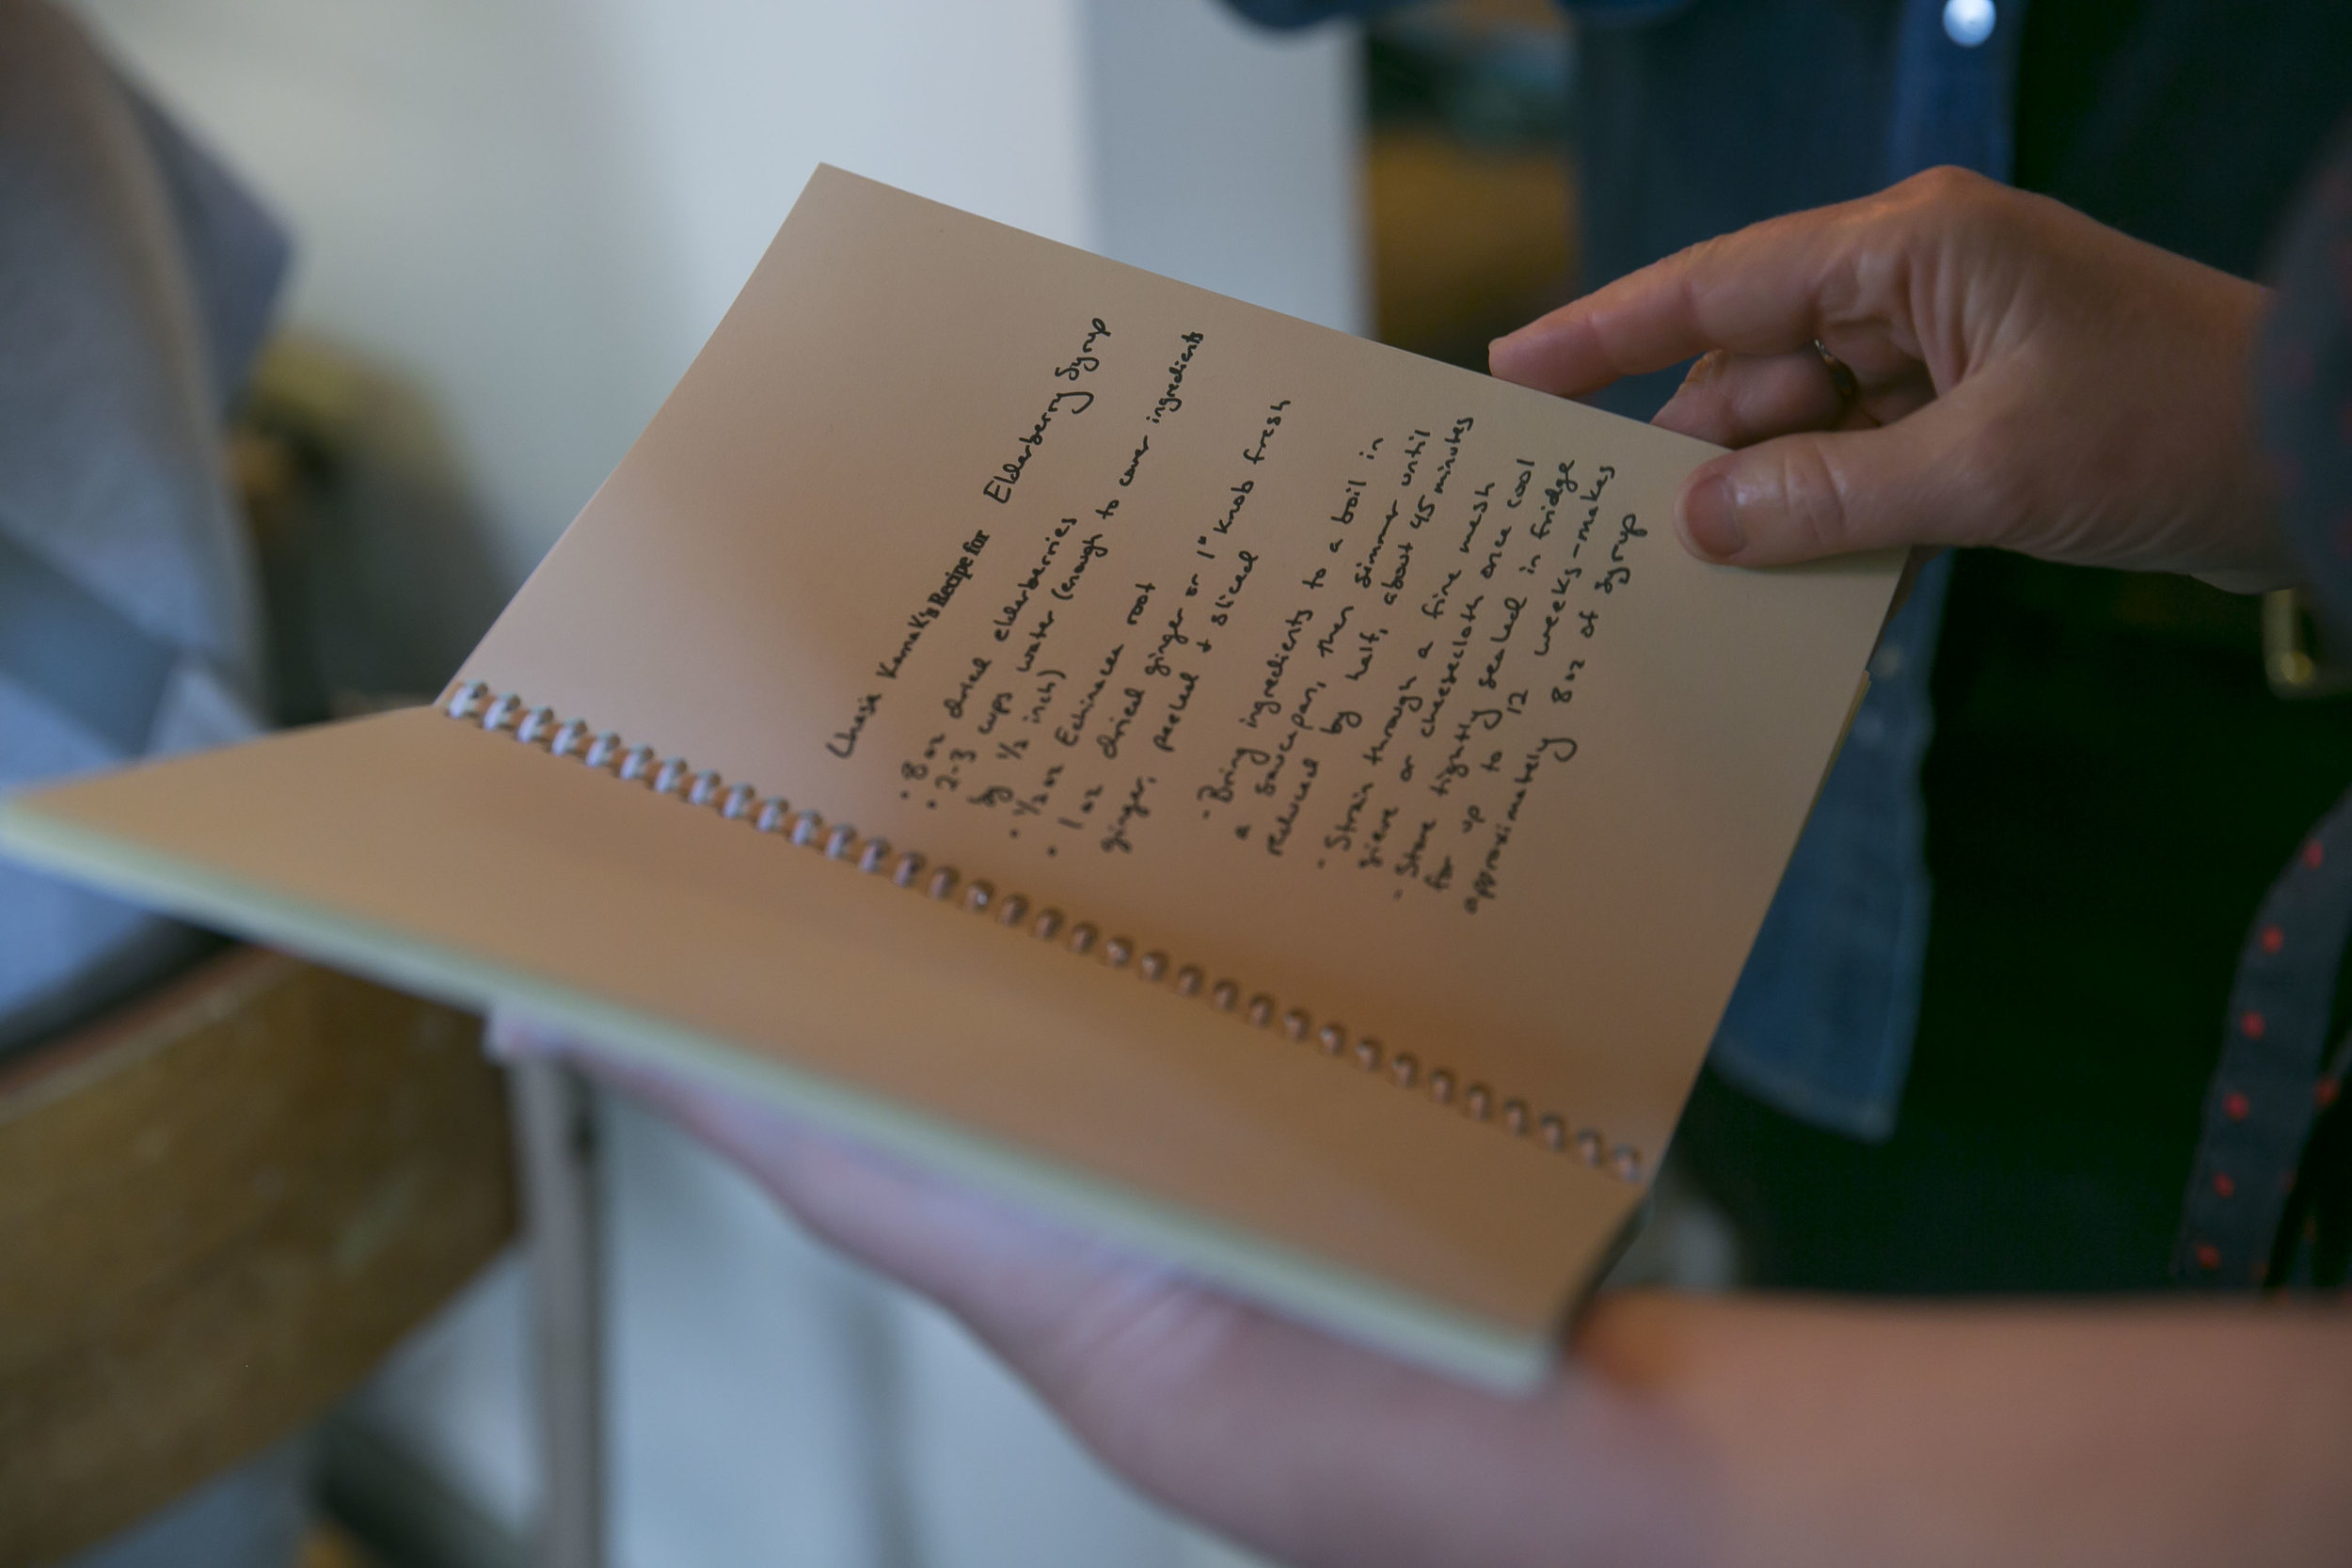 Kamak's Recipe for Elderberry Syrup
· 8 oz dried elderberries
· 2-3 cups water (enough to cover ingredients
by 1/2 inch)
· 1/2 oz Echinacea root
· 1 oz dried ginger or 1" knob fresh
ginger, peeled + sliced
· Bring ingredients to a boil in
a saucepan, then simmer until
reduced by half, about 45 minutes
· Strain through a fine mesh
sieve or cheesecloth once cool
· Store tightly sealed in fridge
for up to 12 weeks - makes
approximately 8 oz of syrup